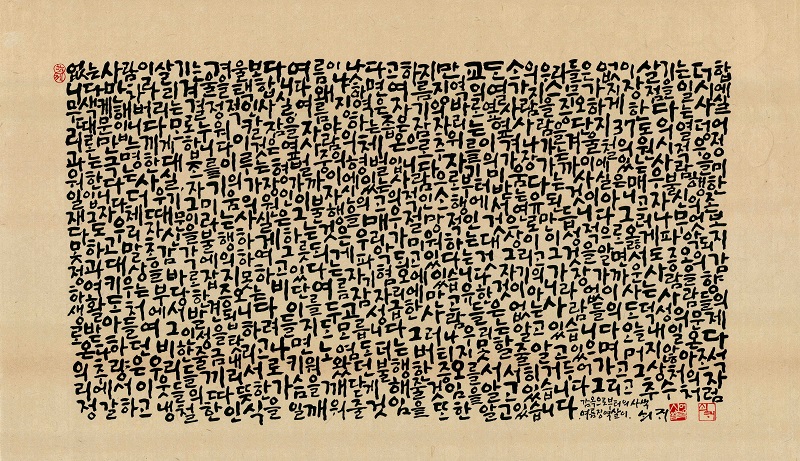 없는 사람이 살기는 겨울보다 여름이 낫다고 하지만 교도소의 우리들은 없이 살기는 더합
니다만 차라리 겨울을 택합니다 왜냐하면 여름징역의 열가지 스무가지 장점을 일시에
무색케 해버리는 결정적인 사실 여름징역은 자기의 바로 옆사람을 증오하게 한다는 사실
때문입니다 모로 누워 칼잠을 자야하는 좁은 잠자리는 옆사람을 단지 37도의 열덩어
리로만 느끼게 합니다 이것은 옆사람의 체온으로 추위를 이겨나가는 겨울철의 원시적 우정
과는 극명한 대조를 이루는 형벌중의 형벌입니다 자기의 가장 가까이에 있는 사람을 미
워한다는 사실 자기의 가장 가까이에 있는 사람으로부터 미움받는다는 사실은 매우 불행한
일입니다 더욱이 그 미움의 원인이 자신의 고의적인 소행에서 연유된 것이 아니고 자신의 존
재 그 자체 때문이라는 사실은 그 불행을 매우 절망적인 것으로 만듭니다 그러나 무엇보
다도 우리 자신을 불행하게 하는 것은 우리가 미워하는 대상이 이성적으로 옳게 파악되지
못하고 말초감각에 의하여 그릇되게 파악되고 있다는 것 그리고 그것을 알면서도 증오의 감
정과 대상을 바로잡지 못하고 있다는 자기혐오에 있습니다 자기의 가장 가까운 사람을 향
하여 키우는 부당한 증오는 비단 여름 잠자리에만 고유한 것이 아니라 없이 사는 사람들의
생활 도처에서 발견됩니다 이를 두고 성급한 사람들은 없는 사람들의 도덕성의 문제
로 받아들여 그 인성을 탓하려 들지도 모릅니다 그러나 우리들은 알고 있습니다 오늘내일 온다
온다 하던 비 한줄금 내리고 나면 노염도 더는 버티지 못할 줄 알고 있으며 머지않아 조석
의 추량은 우리들끼리 서로 키워왔던 불행한 증오를 서서히 거두어가고 그 상처의 자
리에서 이웃들의 따뜻한 가슴을 깨닫게 해줄 것임을 알고 있습니다 그리고 추수처럼
정갈하고 냉철한 인식을 일깨워줄 것임을 또한 알고 있습니다
감옥으로부터의 사색
여름징역살이. 쇠귀